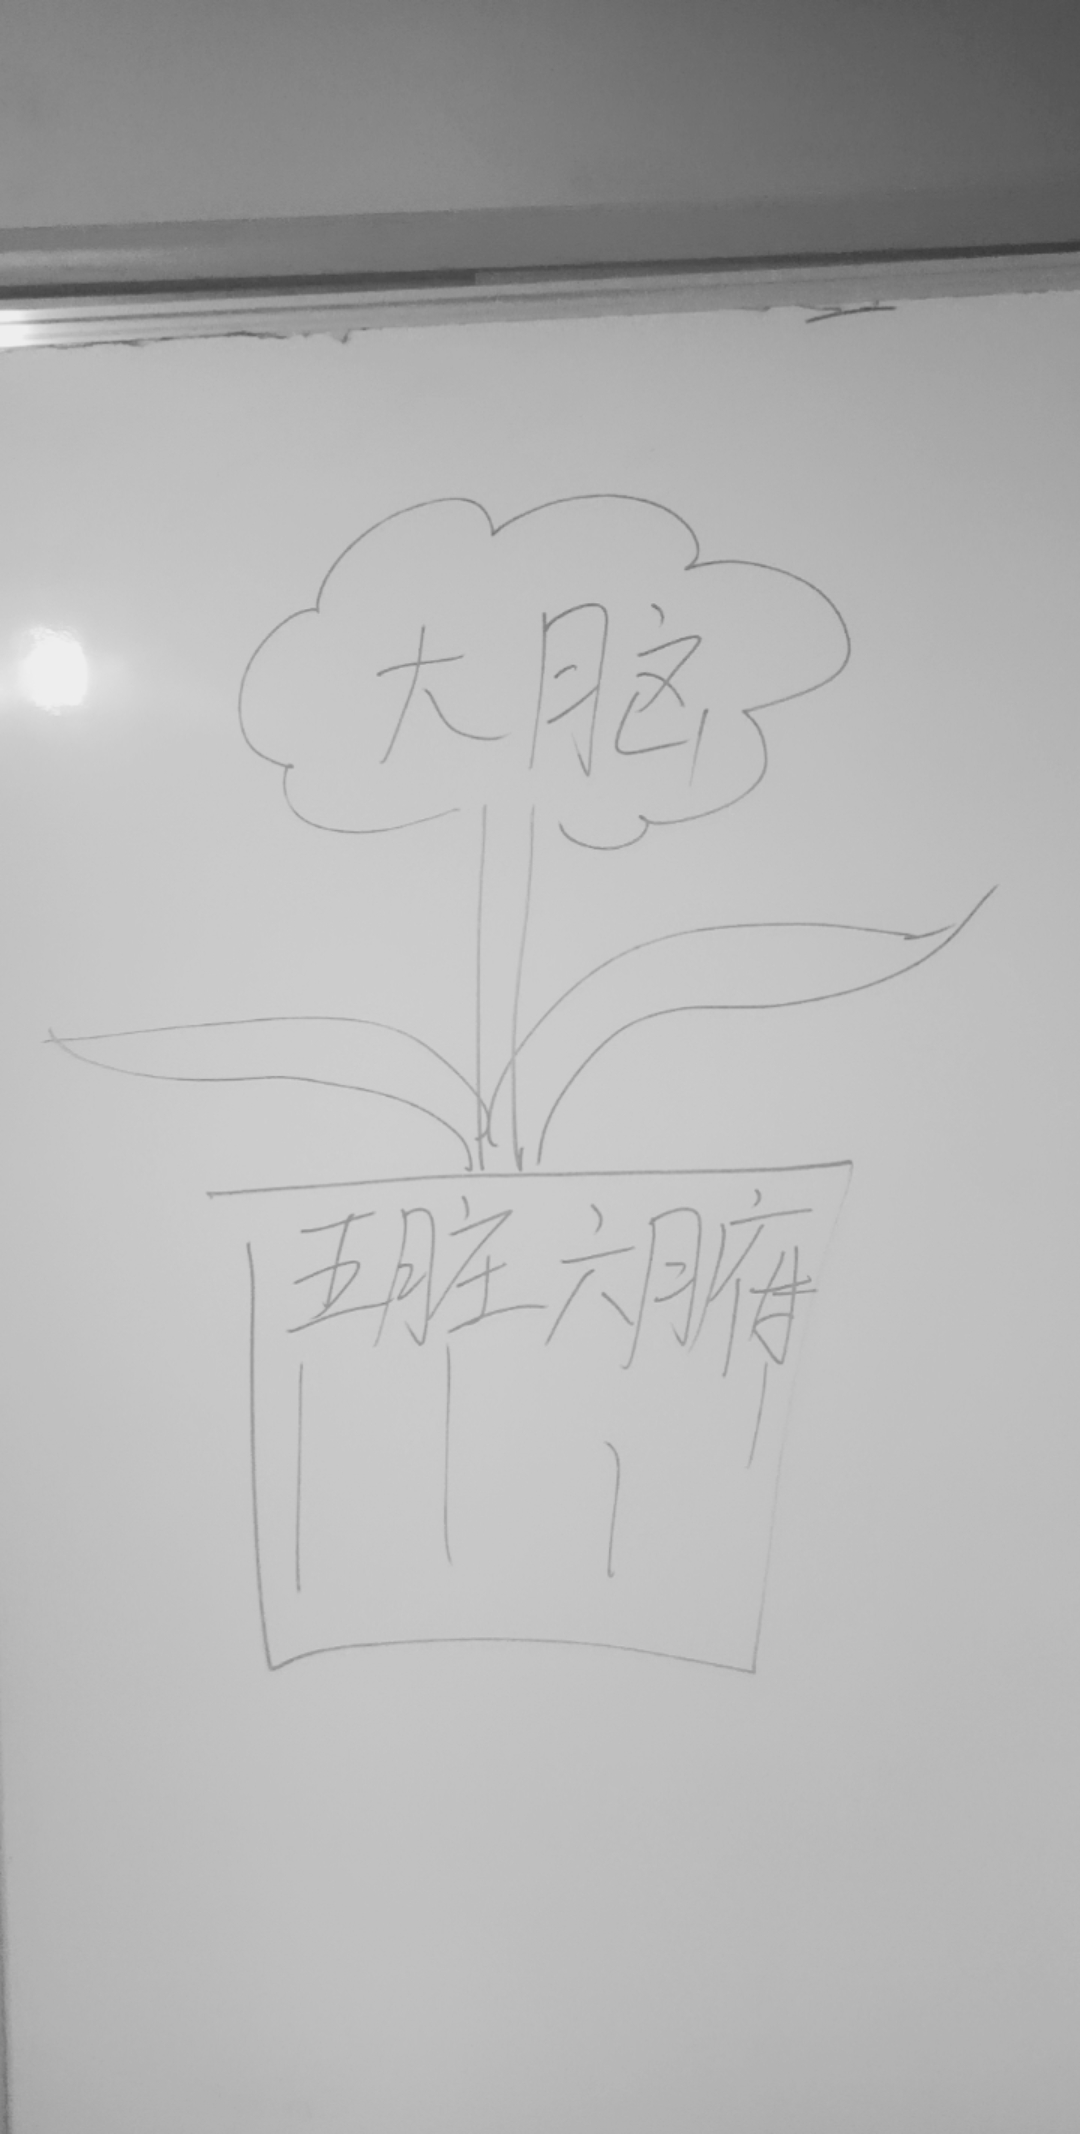 大脑
五脏六腑